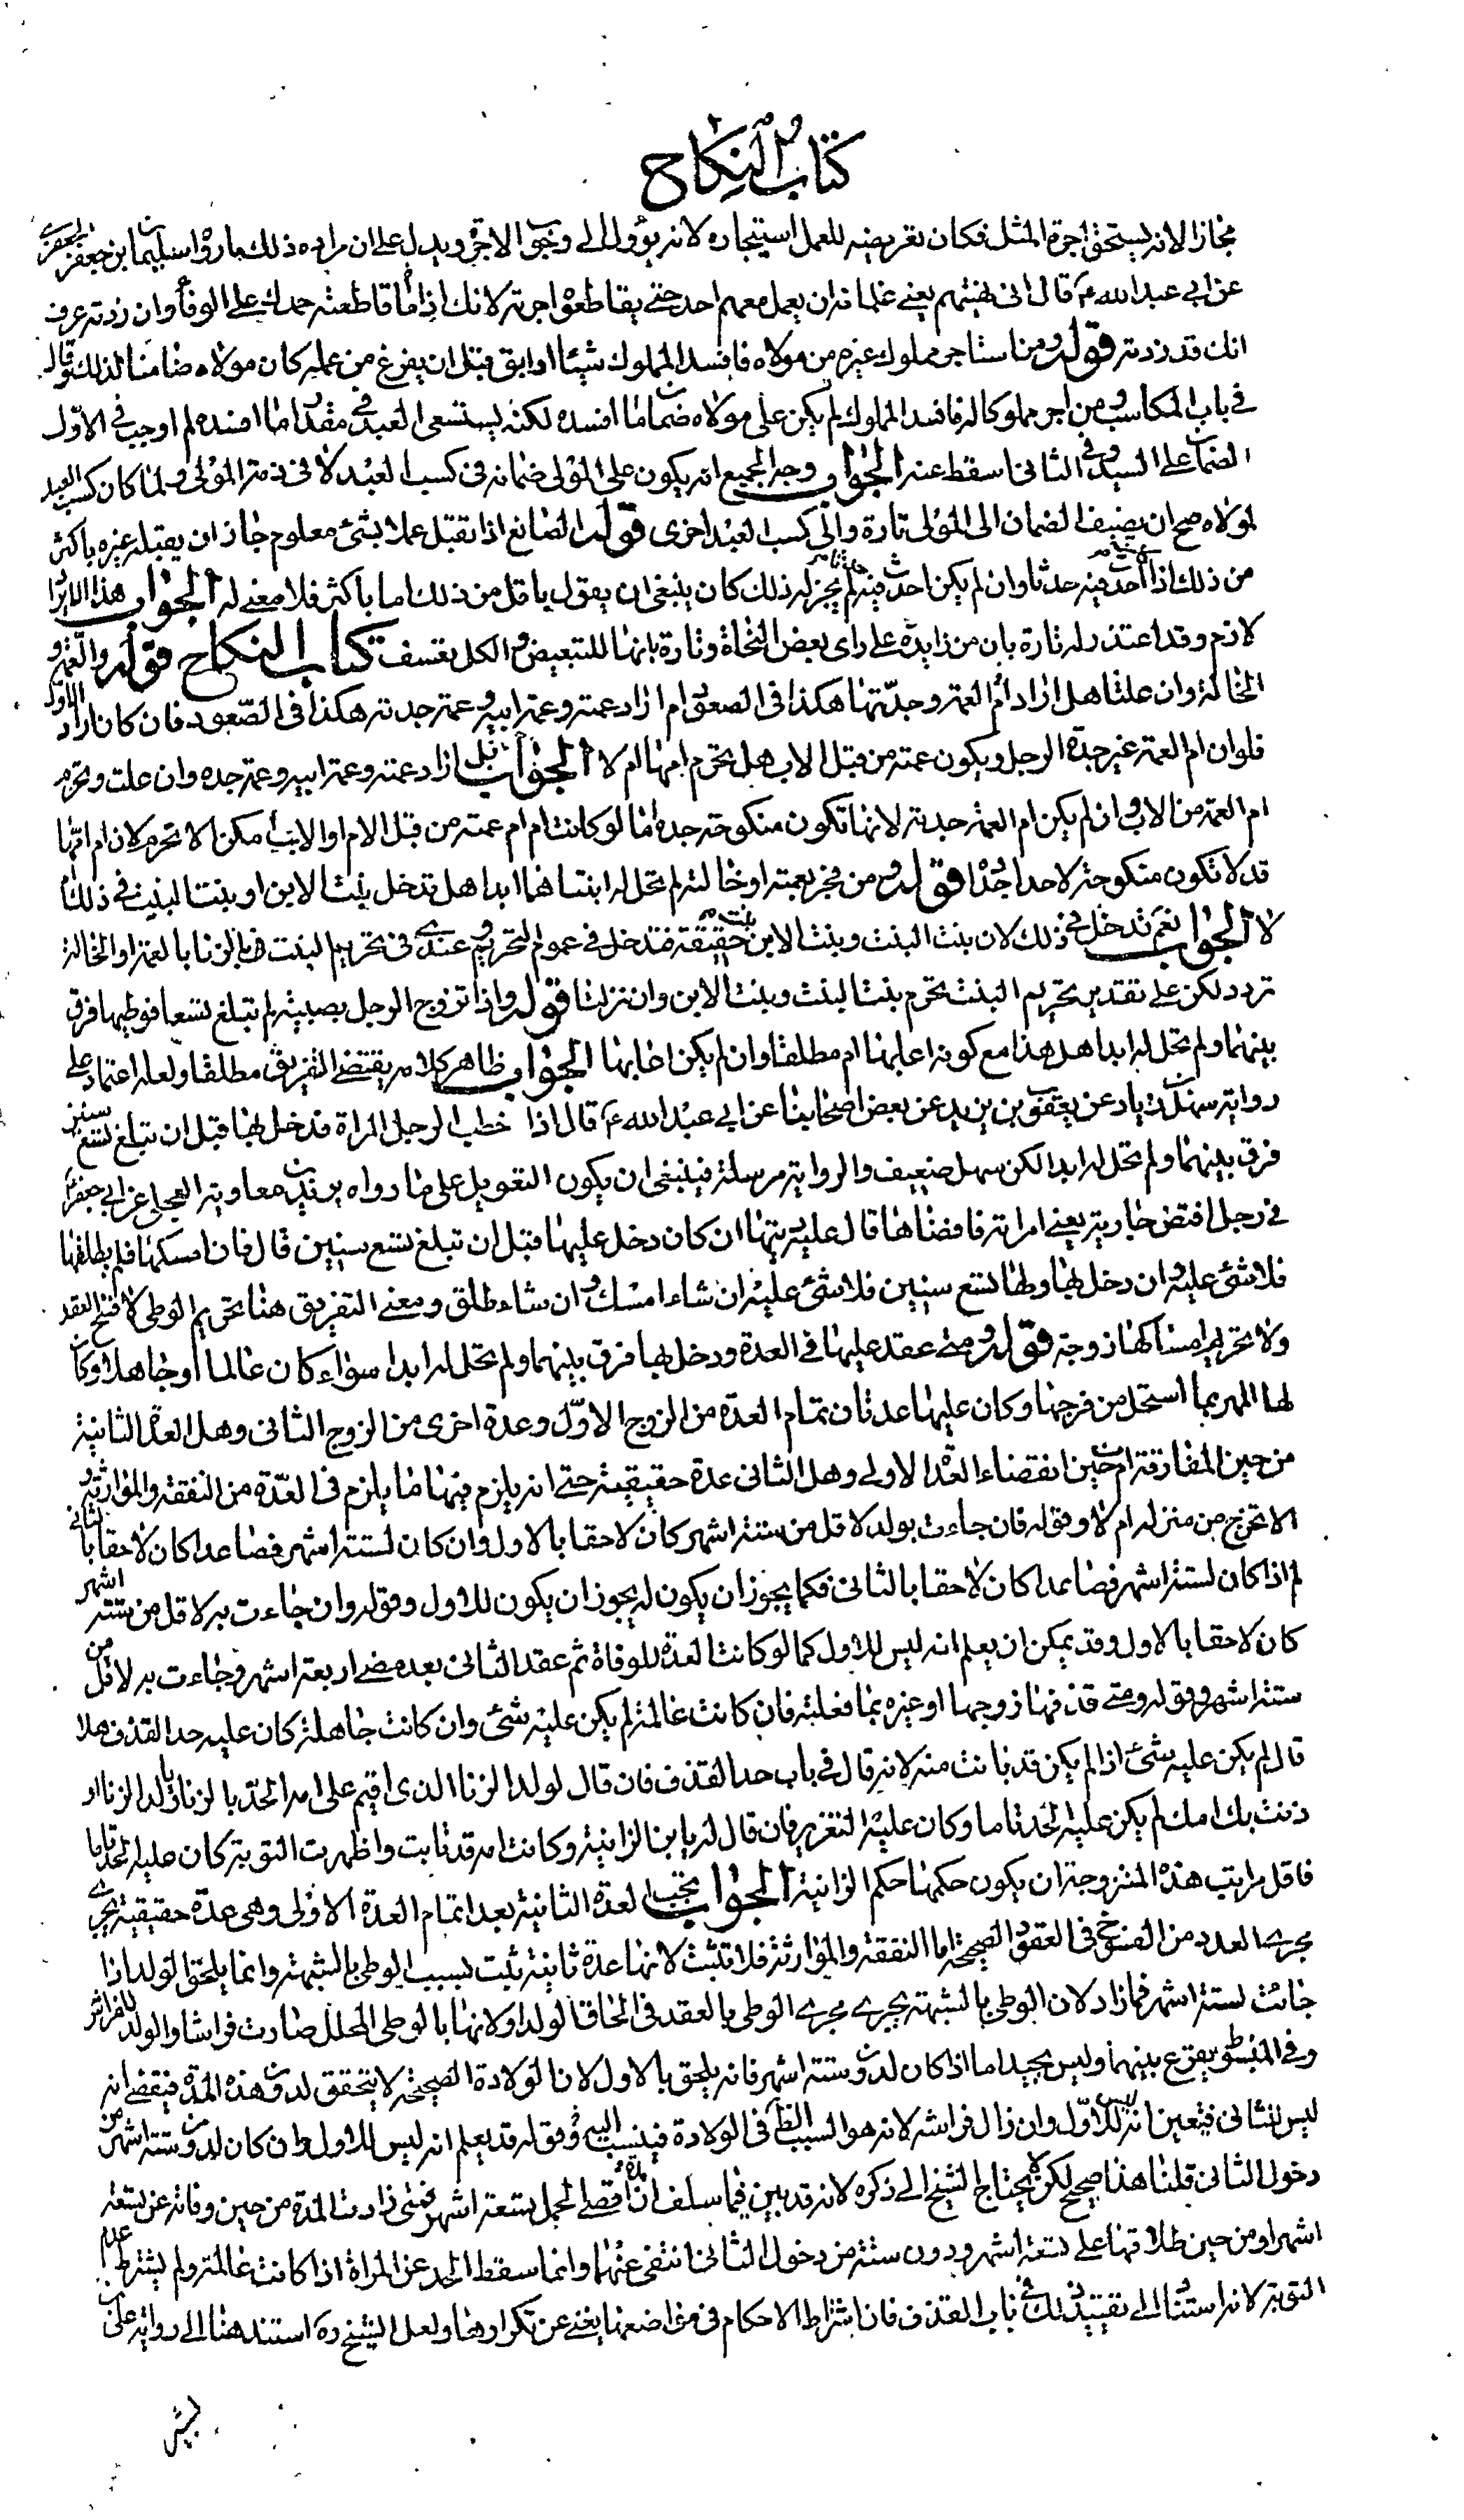 كتاب النكاح
مجازا لانه يستحق اجرة المثل فكان تعريضه للعمل استيجاره لانه يؤول الى وجوب الاجرة ويدل على ان مراده ذلك ما رواه سليمان بن جعفر الجعفرى
عن ابى عبد الله ع قال انى نهيتهم يعنى غلمانه ان يعمل معهم احد حتى يقاطعوا اجرته لانك اذا ما قاطعته حمدك على الوفاء وان زدته عرف
انك قد زدته قوله ومن استاجر مملوك غيره من مولاه فافسد المملوك شيئا او ابق قبل ان يفرغ من عمله كان مولاه ضامنا لذلك وقال
فى باب المكاسب ومن اجر مملوكا له فافسد المملوك لم يكن على مولاه ضمان ما افسده لكنه يستسعى العبد فى مقدار ما افسده لم اوجب فى الاول
الضمان على السيد وفى الثانى اسقط عنه الجواب وجه الجمع انه يكون على المولى ضمانه فى كسب العبد لا فى ذمة المولى ولما كان كسب العبد
لمولاه صح ان يضيف الضمان الى المولى تارة والى كسب العبد اخرى قوله الصانع اذا تقبل عملا بشئ معلوم جاز ان يقبله غيره باكثر
من ذلك اذا احدث فيه حدثا وان لم يكن احدث فيه لم يجز له ذلك كان ينبغى ان يقول باقل من ذلك اما باكثر فلا معنى له الجواب هذا الايراد
لازم وقد اعتذر له تارة بان من زايدة على راى بعض النحاة وتارة بانها للتبعيض والكل تعسف كتاب النكاح قوله والعمة و
الخالة وان علتا هل اراد ام العمة وجدتها هكذا فى الصعود ام اراد عمته وعمة ابيه وعمة جدته هكذا فى الصعود فان كان اراد الاول
فلو ان ام العمة غير جدة الرجل ويكون عمته من قبل الاب هل تحرم امها ام لا الجواب بل اراد عمته وعمة ابيه وعمة جده وان علت وتحرم
ام العمة من الاب وان لم يكن ام العمة جدته لانها تكون منكوحة جده اما لو كانت ام ام عمته من قبل الام او الاب مكن الا تحرم لان ام امها
قد لا تكون منكوحة لاحد اجداده قوله ومن فجر بعمته او خالته لم تحل له ابنتاهما ابدا هل تدخل بنت الابن او بنت البنت فى ذلك ام
لا الجواب نعم تدخل فى ذلك لان بنت البنت وبنت الابن بنت حقيقة فتدخل فى عموم التحريم وعندى فى تحريم البنت هنا بالزنا بالعمة او الخالة
تردد لكن على تقدير تحريم البنت تحرم بنت البنت وبنت الابن وان نزلتا قوله واذا تزوج الرجل بصبية لم تبلغ تسعا فوطيها فرق
بينهما ولم تحل له ابدا هل هذا مع كونه اعابها ام مطلقا وان لم يكن اعابها الجواب ظاهر كلامه يقتضى التفريق مطلقا ولعله اعتمادا على
رواية سهل بن زياد عن يعقوب بن يزيد عن بعض اصحابنا عن ابى عبد الله ع قال اذا خطب الرجل المراة فدخل بها قبل ان تبلغ تسع سنين
فرق بينهما ولم تحل له ابدا لكن سهل ضعيف والرواية مرسلة فينبغى ان يكون التعويل على ما رواه بريد بن معاوية العجلى عن ابى جعفر ع
فى رجل افتض جارية يعنى امراته فافضاها قال عليه ديتها ان كان دخل عليها قبل ان تبلغ تسع سنين قال فان امسكها فلم يطلقها
فلا شئ عليه وان دخل بها ولها تسع سنين فلا شئ عليه ان شاء امسك وان شاء طلق ومعنى التفريق هنا تحريم الوطى لا فسخ العقد
ولا تحريم امساكها زوجة قوله ومتى عقد عليها فى العدة ودخل بها فرق بينهما ولم تحل له ابدا سواء كان عالما او جاهلا وكان
لها المهر بما استحل من فرجها وكان عليها عدتان تمام العدة من الزوج الاول وعدة اخرى من الزوج الثانى وهل العدة الثانية
من حين المفارقة ام من حين انقضاء العدة الاولى وهل الثانى عدة حقيقية حتى انه يلزم فيها ما يلزم فى العدة من النفقة والموارثة و
الا تخرج من منزله ام لا وقوله فان جاءت بولد لاقل من ستة اشهر كان لاحقا بالاول وان كان لستة اشهر فصاعدا كان لاحقا بالثانى
لم اذا كان لستة اشهر فصاعدا كان لاحقا بالثانى فكما يجوز ان يكون له يجوز ان يكون للاول وقوله وان جاءت به لاقل من ستة اشهر
كان لاحقا بالاول وقد يمكن ان يعلم انه ليس للاول كما لو كانت العدة للوفاة ثم عقد الثانى بعد مضى اربعة اشهر وجاءت به لاقل من
ستة اشهر وقوله ومتى قذفها زوجها او غيره بما فعلته فان كانت عالمة لم يكن عليه شئ وان كانت جاهلة كان عليه حد القذف هلا
قال لم يكن عليه شئ اذا لم يكن قد تابت منه لانه قال فى باب حد القذف فان قال لولد الزنا الذى اقيم على امه الحد بالزنا يا ولد الزنا او
زنت بك امك لم يكن عليه الحد تاما وكان عليه التعزير فان قال له يا ابن الزانية وكانت امه قد تابت واظهرت التوبة كان عليه الحد تاما
فاقل مراتب هذه المتزوجة ان يكون حكمها حكم الزانية الجواب تجب العدة الثانية بعد اتمام العدة الاولى وهى عدة حقيقية تجرى
مجرى العدد من الفسوخ فى العقود الصحيحة اما النفقة والموارثة فلا تثبت لانها عدة ثانية ثبتت بسبب الوطى بالشبهة وانما يلحق الولد اذا
جائت لستة اشهر فما زاد لان الوطى بالشبهة يجرى مجرى الوطى بالعقد فى الحاق الولد ولانها بالوطى المحلل صارت فراشا والولد للفراش
وفى المبسوط يقرع بينهما وليس بجيد اما اذا كان لدون ستة اشهر فانه يلحق بالاول لان الولادة الصحيحة لا يتحقق لدون هذه المدة فيقضى انه
ليس للثانى فيتعين انه للاول وان زال فراشه لانه هو السبب الظاهر فى الولادة فينسب اليه وقوله قد يعلم انه ليس للاول وان كان لدون ستة اشهر من
دخول الثانى قلنا هذا صحيح لكن لا يحتاج الشيخ الى ذكره لانه قد بين فيما سلف ان اقصى الحمل تسعة اشهر فمتى زادت المدة من حين وفاته عن تسعة
اشهر او من حين طلاقها على تسعة اشهر ودون ستة من دخول الثانى انتفى عنهما وانما سقط الحد عن المراة اذا كانت عالمة ولم يشترط عدم
التوبة لانه استنادا الى تقييد ذلك فى باب القذف فان اشتراط الاحكام فى مواضعها يغنى عن تكرارها ولعل الشيخ ره استند هنا الى رواية على بن